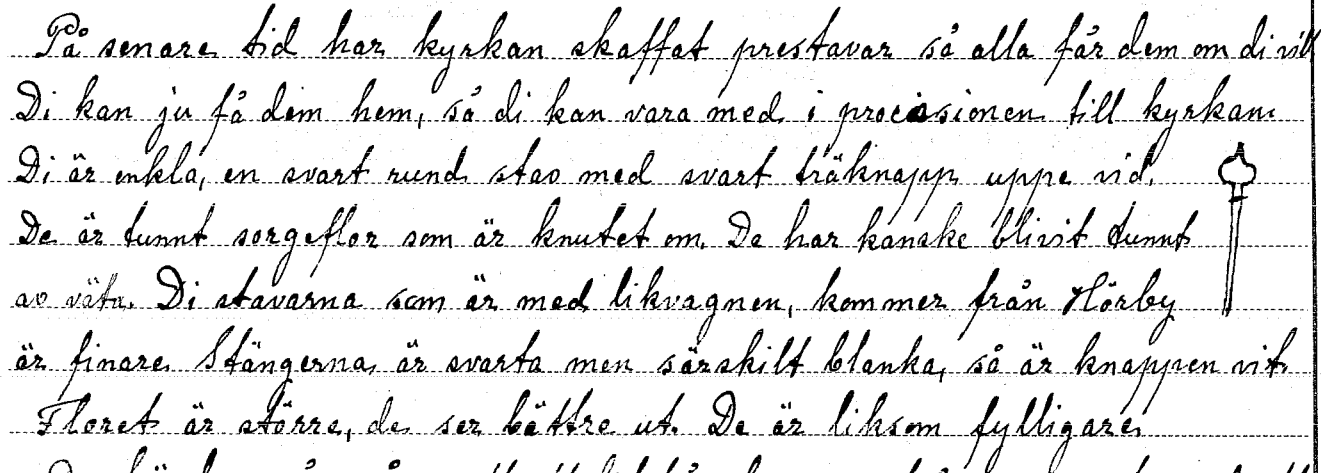 På senare tid har kyrkan skaffat prestavar så alla får dem om di vill
Di kan ju få dem hem, så di kan vara med i processionen till kyrkan.
Di är enkla, en svart rund stav med svart träknapp uppe vid.
De är tunnt sorgeflor som är knutet om. De har kanske blivit tunnt
av väta. Di stavarna som är med likvagnen, kommer från Hörby
är finare. Stängerna är svarta men särskilt blanka, så är knappen vit.
Floret är större, de ser bättre ut. De är liksom fylligare.